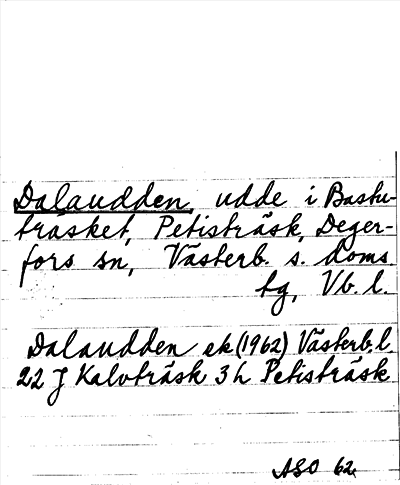 Dalaudden, udde i Bastu-
träsket, Petisträsk, Deger-
fors sn, Västerb. s. doms.
tg, Vb. l.
Dalaudden ek (1962) Västerb. l.
22 J Kalvträsk 3 h Petisträsk
ASO 62